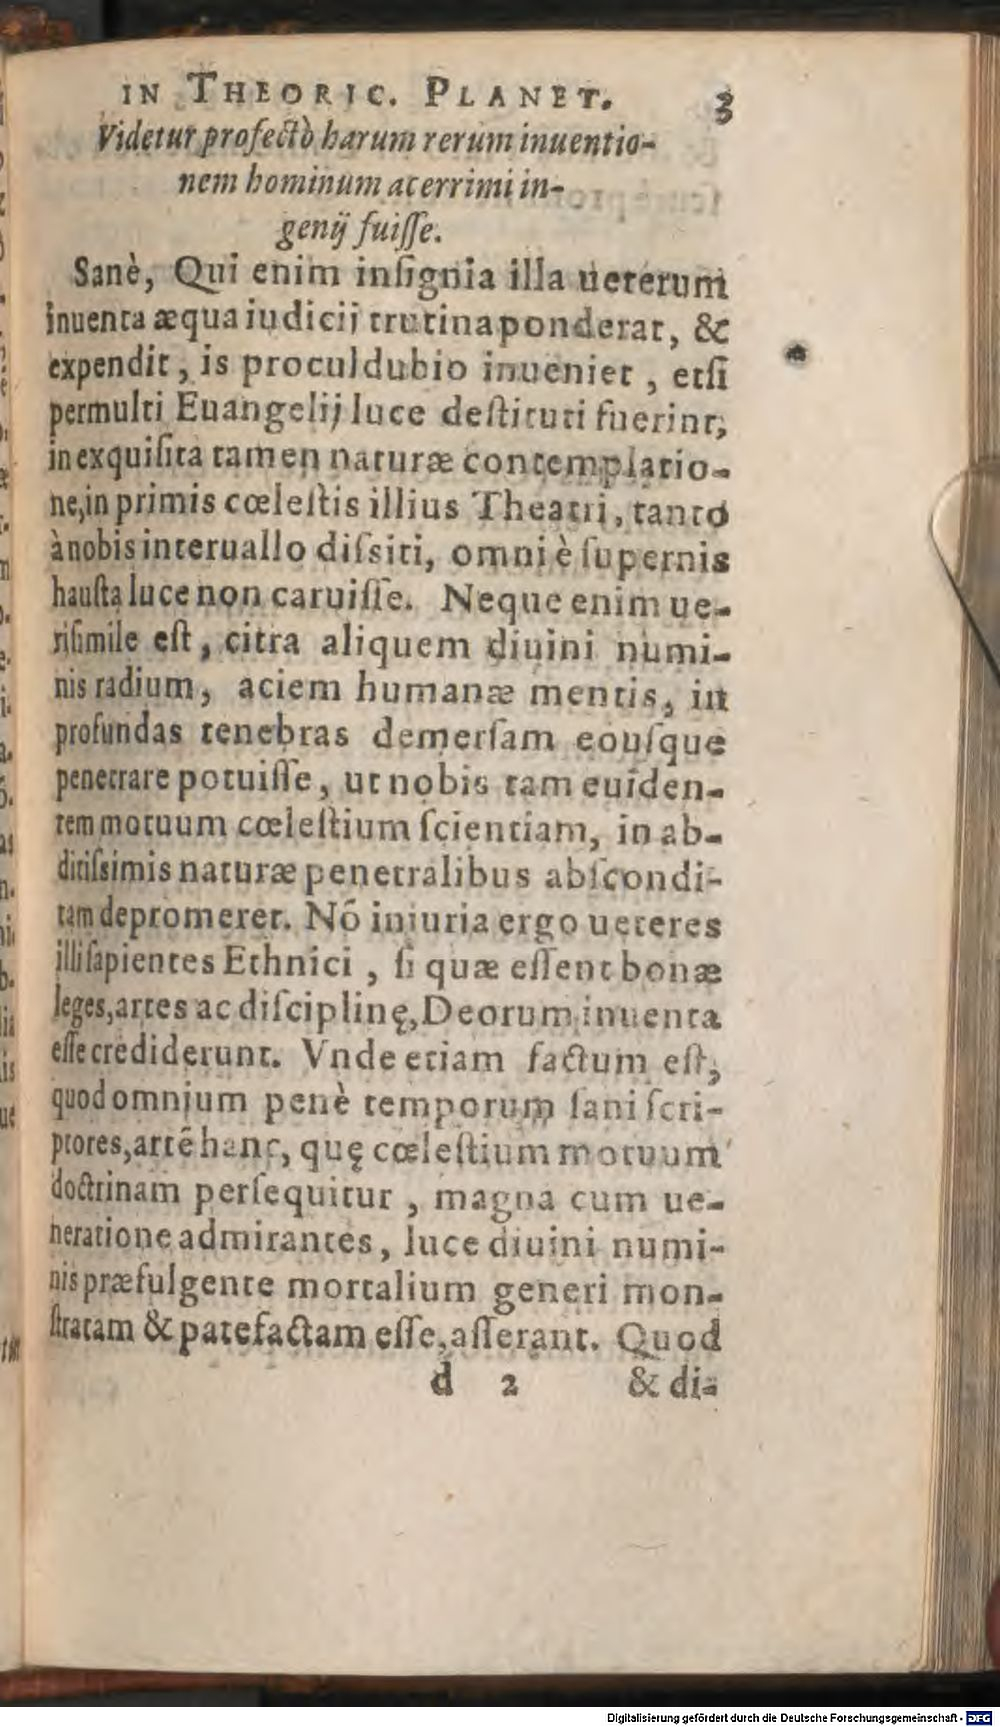 IN THEORIC. PLANET. 3
Videtur profectò harum rerum inuentio-
nem hominum acerrimi in-
genij fuiſſe.
Sanè, Qui enim inſignia illa ueterum
inuenta æqua iudicij trutina ponderat, &
expendit, is proculdubio inueniet, etſi
permulti Euangelij luce deſtituti fuerint,
in exquiſita tamen naturæ contemplatio-
ne, in primis cœleſtis illius Theatri, tanto
à nobis interuallo diſsiti, omni è ſupernis
hauſta luce non caruiſſe. Neque enim ue-
riſimile eſt, citra aliquem diuini numi-
nis radium, aciem humanæ mentis, in
profundas tenebras demerſam eouſque
penetrare potuiſſe, ut nobis tam euiden-
tem motuum cœleſtium ſcientiam, in ab-
ditiſsimis naturæ penetralibus abſcondi-
tam depromeret. Nō iniuria ergo ueteres
illi ſapientes Ethnici, ſi quæ eſſent bonæ
leges, artes ac diſciplinę, Deorum inuenta
eſſe crediderunt. Vnde etiam factum eſt,
quod omnium penè temporum ſani ſcri-
ptores, artē hanc, quę cœleſtium motuum
doctrinam perſequitur, magna cum ue-
neratione admirantes, luce diuini numi-
nis præfulgente mortalium generi mon-
ſtratam & patefactam eſſe, aſſerant. Quod
d 2 & di-
Digitalisierung gefördert durch die Deutsche Forschungsgemeinschaft - DFG